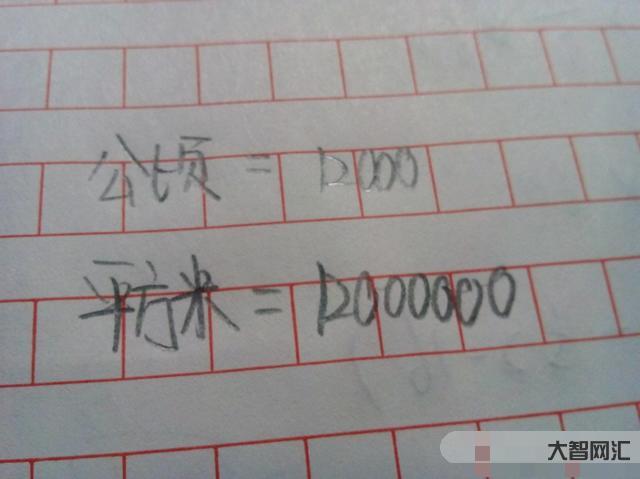 公顷 = 12000
平方米 = 12000000
大智网汇